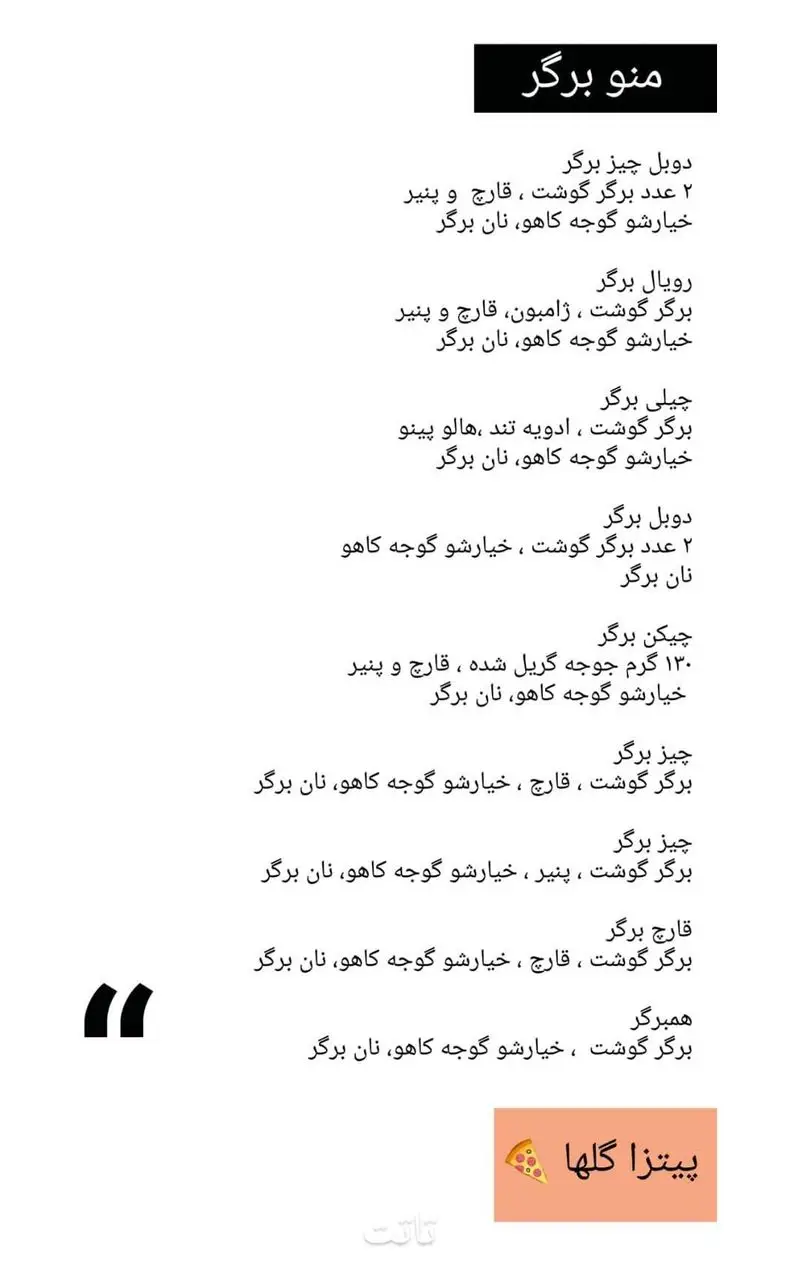 منو برگر
دوبل چیز برگر
۲ عدد برگر گوشت ، قارچ و پنیر
خیارشو گوجه کاهو، نان برگر
رویال برگر
برگر گوشت ، ژامبون، قارچ و پنیر
خیارشو گوجه کاهو، نان برگر
چیلی برگر
برگر گوشت ، ادویه تند ،هالو پینو
خیارشو گوجه کاهو، نان برگر
دوبل برگر
۲ عدد برگر گوشت ، خیارشو گوجه کاهو
نان برگر
چیکن برگر
۱۳۰ گرم جوجه گریل شده ، قارچ و پنیر
خیارشو گوجه کاهو، نان برگر
چیز برگر
برگر گوشت ، قارچ ، خیارشو گوجه کاهو، نان برگر
چیز برگر
برگر گوشت ، پنیر ، خیارشو گوجه کاهو، نان برگر
قارچ برگر
برگر گوشت ، قارچ ، خیارشو گوجه کاهو، نان برگر
همبرگر
برگر گوشت ، خیارشو گوجه کاهو، نان برگر
“
پیتزا گلها 🍕
تاتت